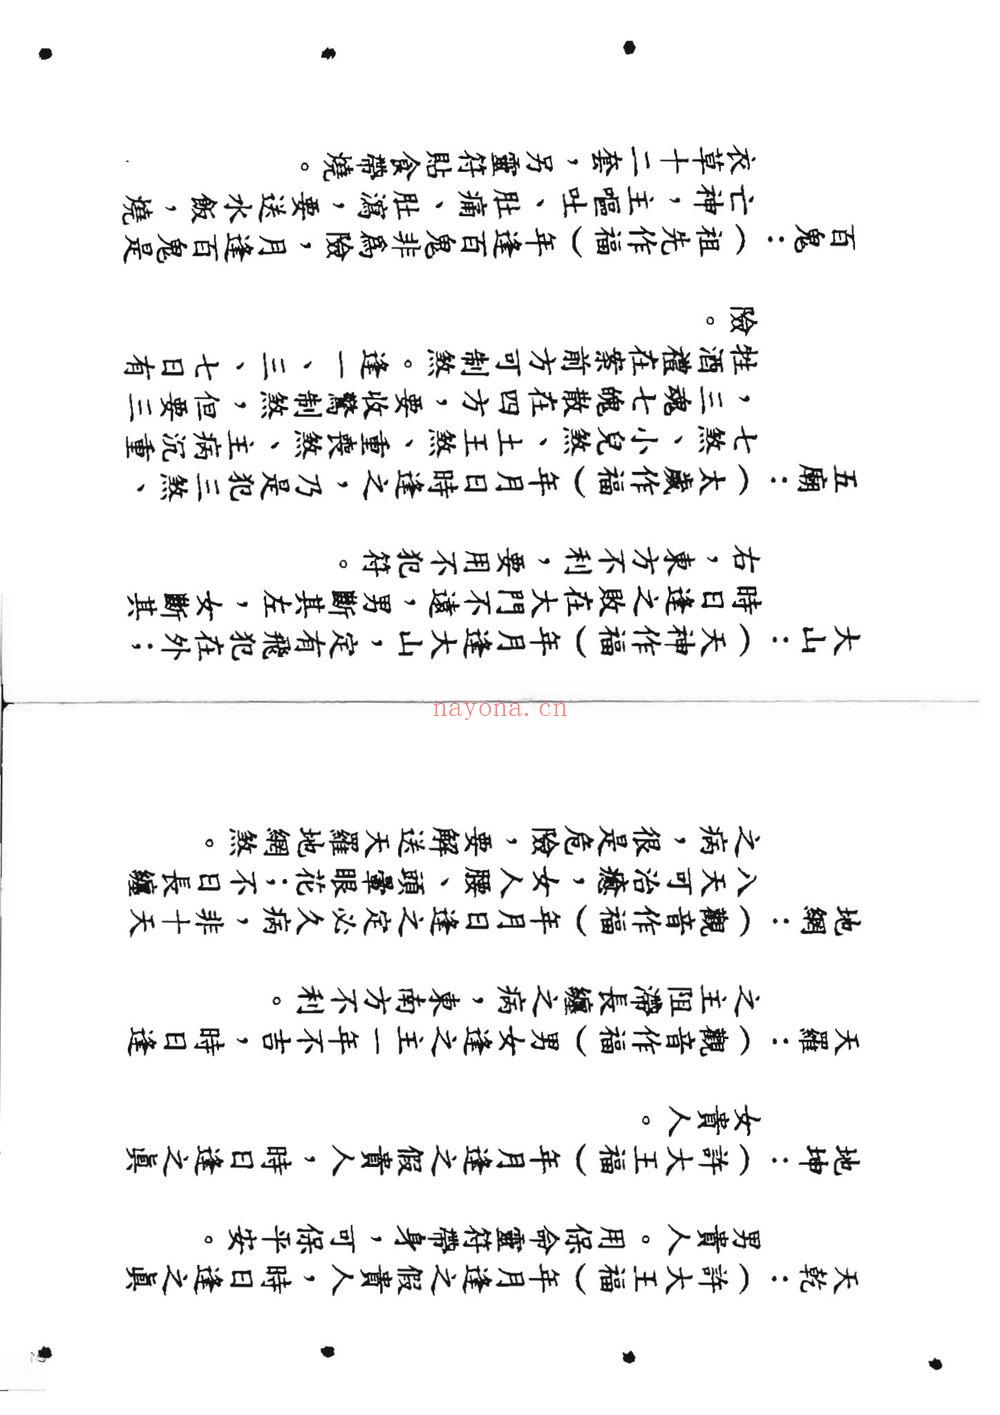 天乾：（許大王福）年月逢之假貴人，時日逢之真
男貴人。用保命靈符帶身，可保平安。
地坤：（許大王福）年月逢之假貴人，時日逢之真
女貴人。
天羅：（觀音作福）男女逢之主一年不吉，時日逢
之主阻滯長纏之病，東南方不利。
地網：（觀音作福）年月日逢之定必久病，非十天
八天可治癒，女人腰、頭暈眼花；不日長纏
之病，很是危險，要解送天羅地網煞。
nayona.cn
大山：（天神作福）年月逢大山，定有飛犯在外；
時日逢之敗在大門不遠，男斷其左，女斷其
右，東方不利，要用不犯符。
五廟：（太歲作福）年月日時逢之，乃是犯三煞、
七煞、小兒煞、土王煞、重喪煞、主病沉重
，三魂七魄散在四方，要收驚制煞，但要三
牲酒禮在案前方可制煞。逢一、三、七日有
險。
百鬼：（祖先作福）年逢百鬼非爲險，月逢百鬼是
亡神，主嘔吐、肚痛、肚瀉，要送水飯，燒
衣草十二套，另靈符貼食帶燒。